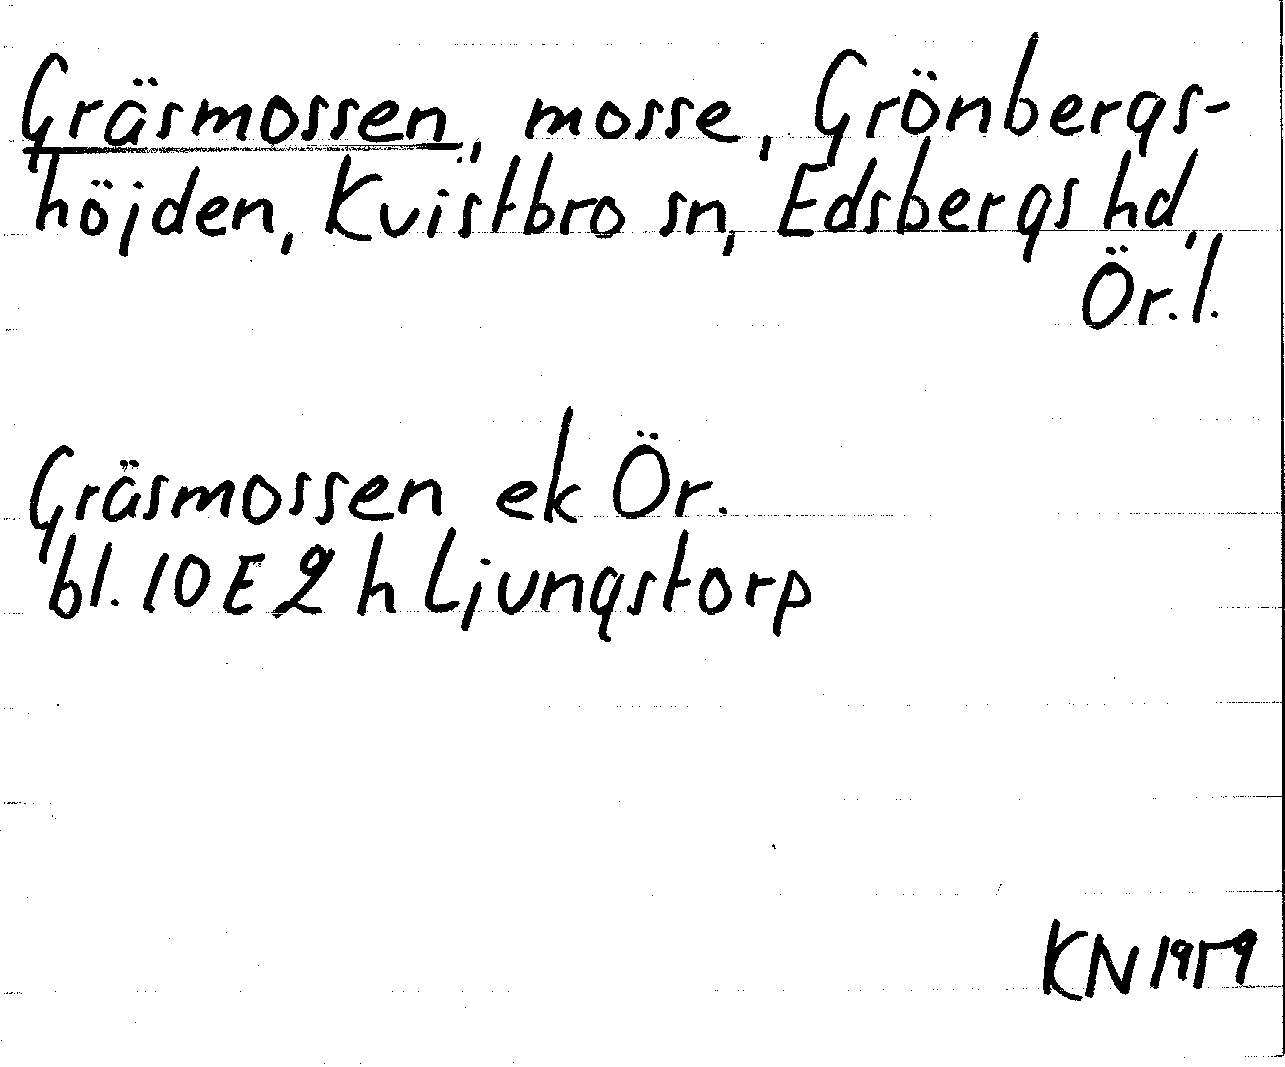 Gräsmossen, mosse, Grönbergs-
höjden, Kvistbro sn, Edsbergs hd,
Ör.l.
Gräsmossen ek Ör.
bl. 10 E 2 h Ljungstorp
KN 1959